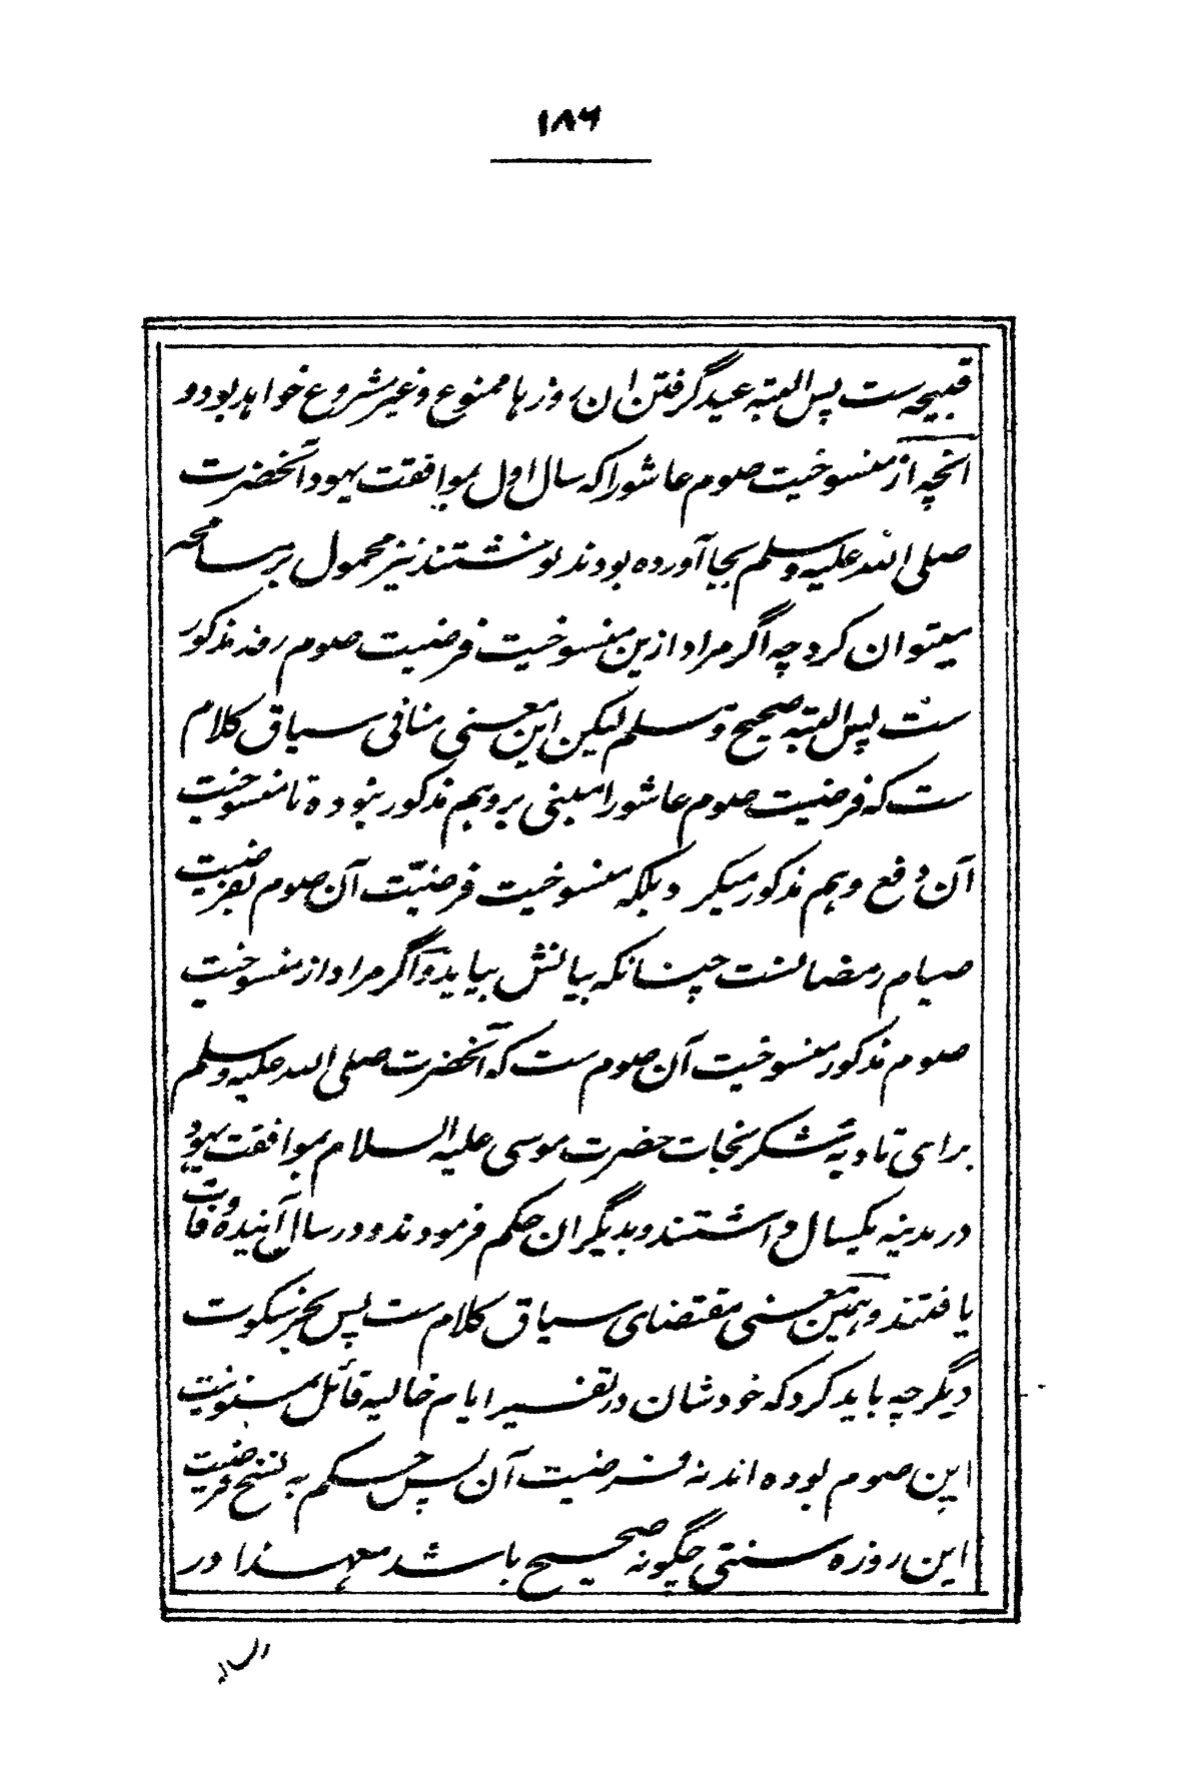 ۱۸۶
قبیحه ست پس البته عید گرفتن ان روزها ممنوع و غیر مشروع خواهد بود و
انچه از منسوخیت صوم عاشورا که سال اول بموافقت یهود آنحضرت
صلی الله علیه وسلم بجا آورده بودند نوشتند نیز محمول بر مسامحه
میتوان کرد چه اگر مراد ازین منسوخیت فرضیت صوم روز مذکور
ست پس البته صحیح و مسلم لیکن این معنی منافی سیاق کلام
ست که فرضیت صوم عاشورا مبنی بر وهم مذکور نبوده تا منسوخیت
آن دفع وهم مذکور میکرد بلکه منسوخیت فرضیّت آن صوم بفرضیت
صیام رمضانست چنانکه بیانش بیاید و اگر مراد از منسوخیت
صوم مذکور منسوخیت آن صوم ست که آنحضرت صلی الله علیه وسلم
برای تادیهٔ شکر نجات حضرت موسی علیه السلام بموافقت یهود
در مدینه یکسال داشتند و بدیگران حکم فرمودند و در سال آینده وفات
یافتند و همین معنی مقتضای سیاق کلام ست پس بجز سکوت
دیگر چه باید کرد که خودشان در تفسیر ایام خالیه قائل بمسنونیت
این صوم بوده اند نه فرضیت آن پس حکم به نسخ فرضیت
این روزه سنتی چگونه صحیح باشد معهذا در